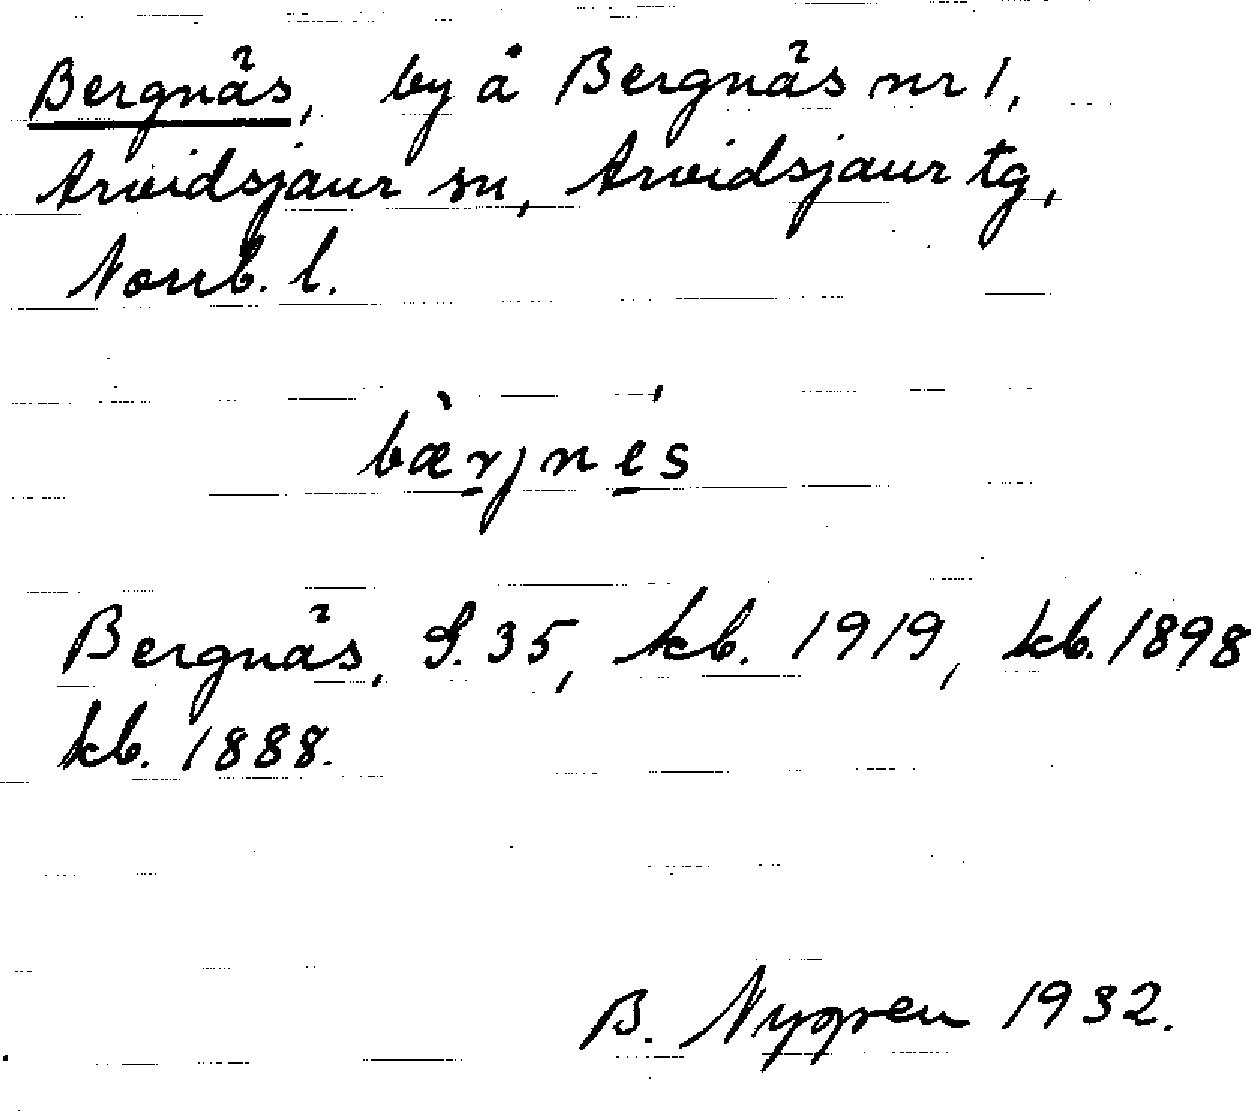 Bergnäs, by å Bergnäs nr 1,
Arvidsjaur sn, Arvidsjaur tg,
Norrb. l.
bær̠jne̠s
Bergnäs, S.35, kb. 1919, kb. 1898
kb. 1888.
B. Nygren 1932.